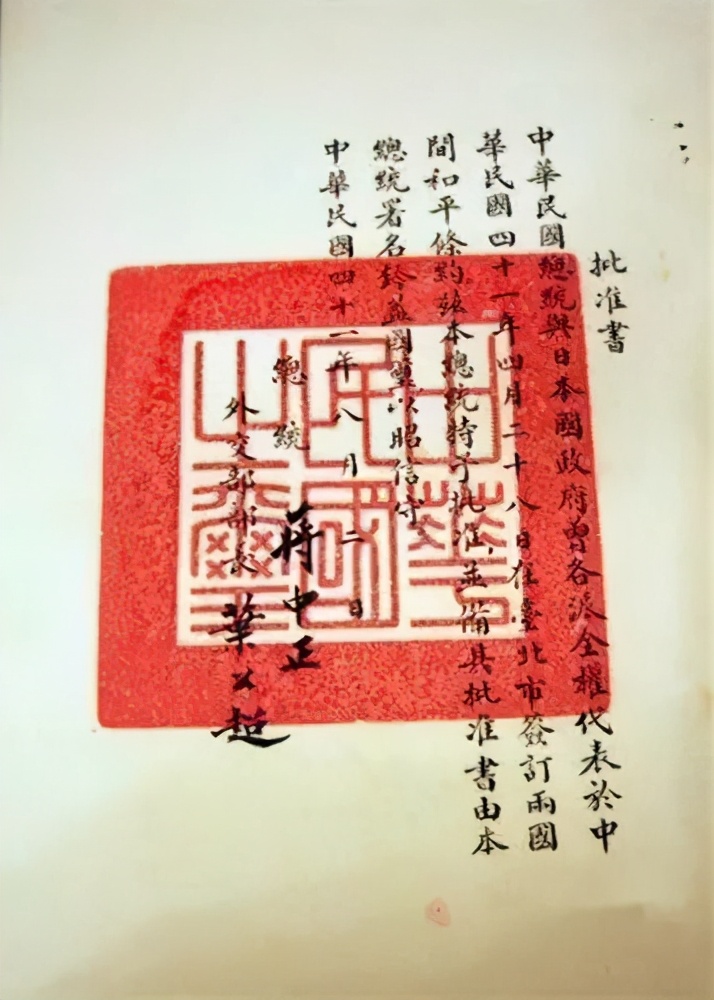 批准書
中華民國總統與日本國政府曾各派全權代表於中
華民國四十一年四月二十八日在臺北市簽訂兩國
間和平條約玆本總統特予批准並備具批准書由本
總統署名鈐蓋國璽以昭信守
中華民國四十一年八月二日
總統 蔣中正
外交部部長 葉公超
中華民國之璽